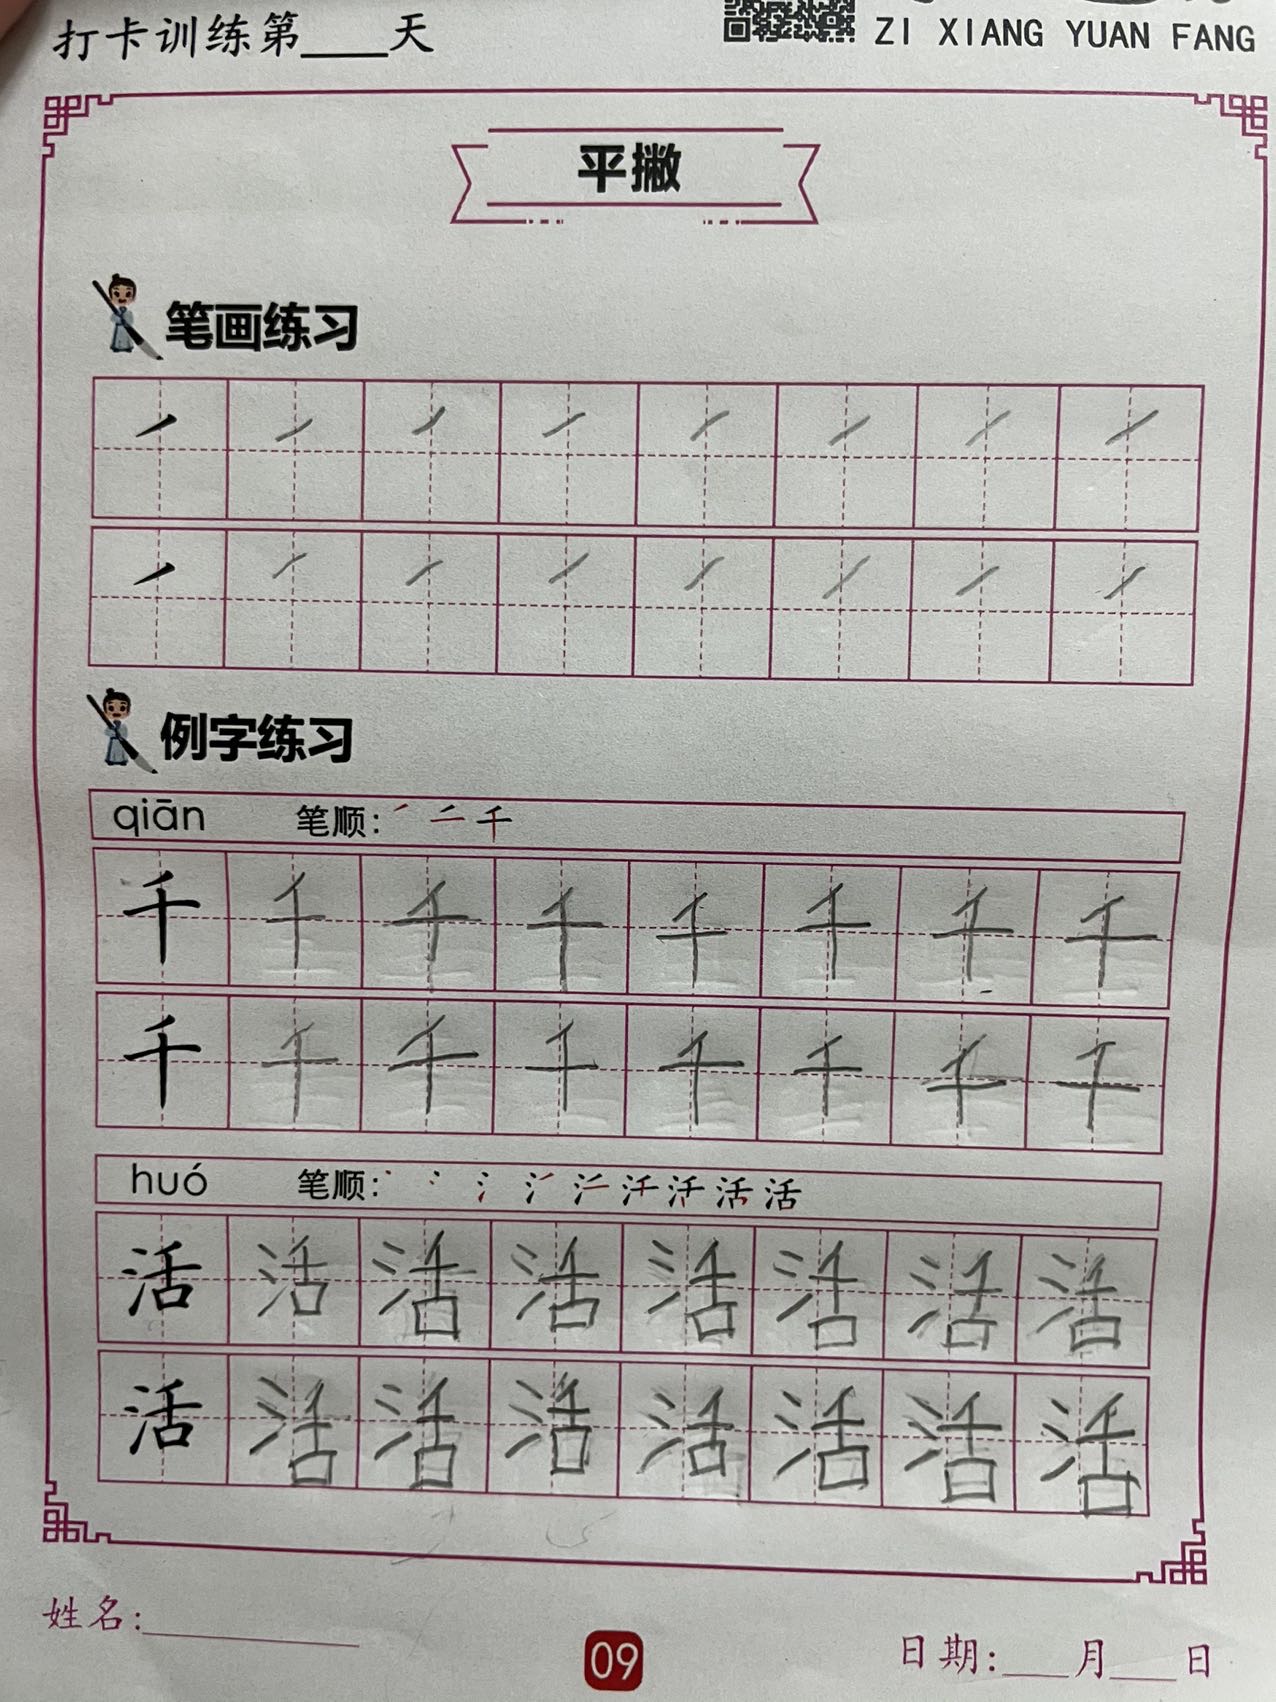 打卡训练第____天
ZI XIANG YUAN FANG
平撇
笔画练习
㇒ ㇒ ㇒ ㇒ ㇒ ㇒ ㇒ ㇒
㇒ ㇒ ㇒ ㇒ ㇒ ㇒ ㇒ ㇒
例字练习
qiān 笔顺: ㇒ 二 千
千 千 千 千 千 千 千 千
千 千 千 千 千 千 千 千
huó 笔顺: 活
活 活 活 活 活 活 活 活
活 活 活 活 活 活 活 活
姓名:__________
09
日期:___月___日